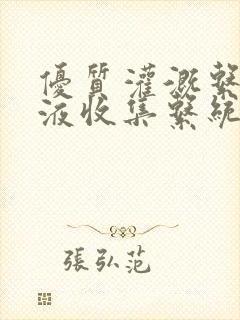 優質灌溉繫
液收集繫統
張弘范